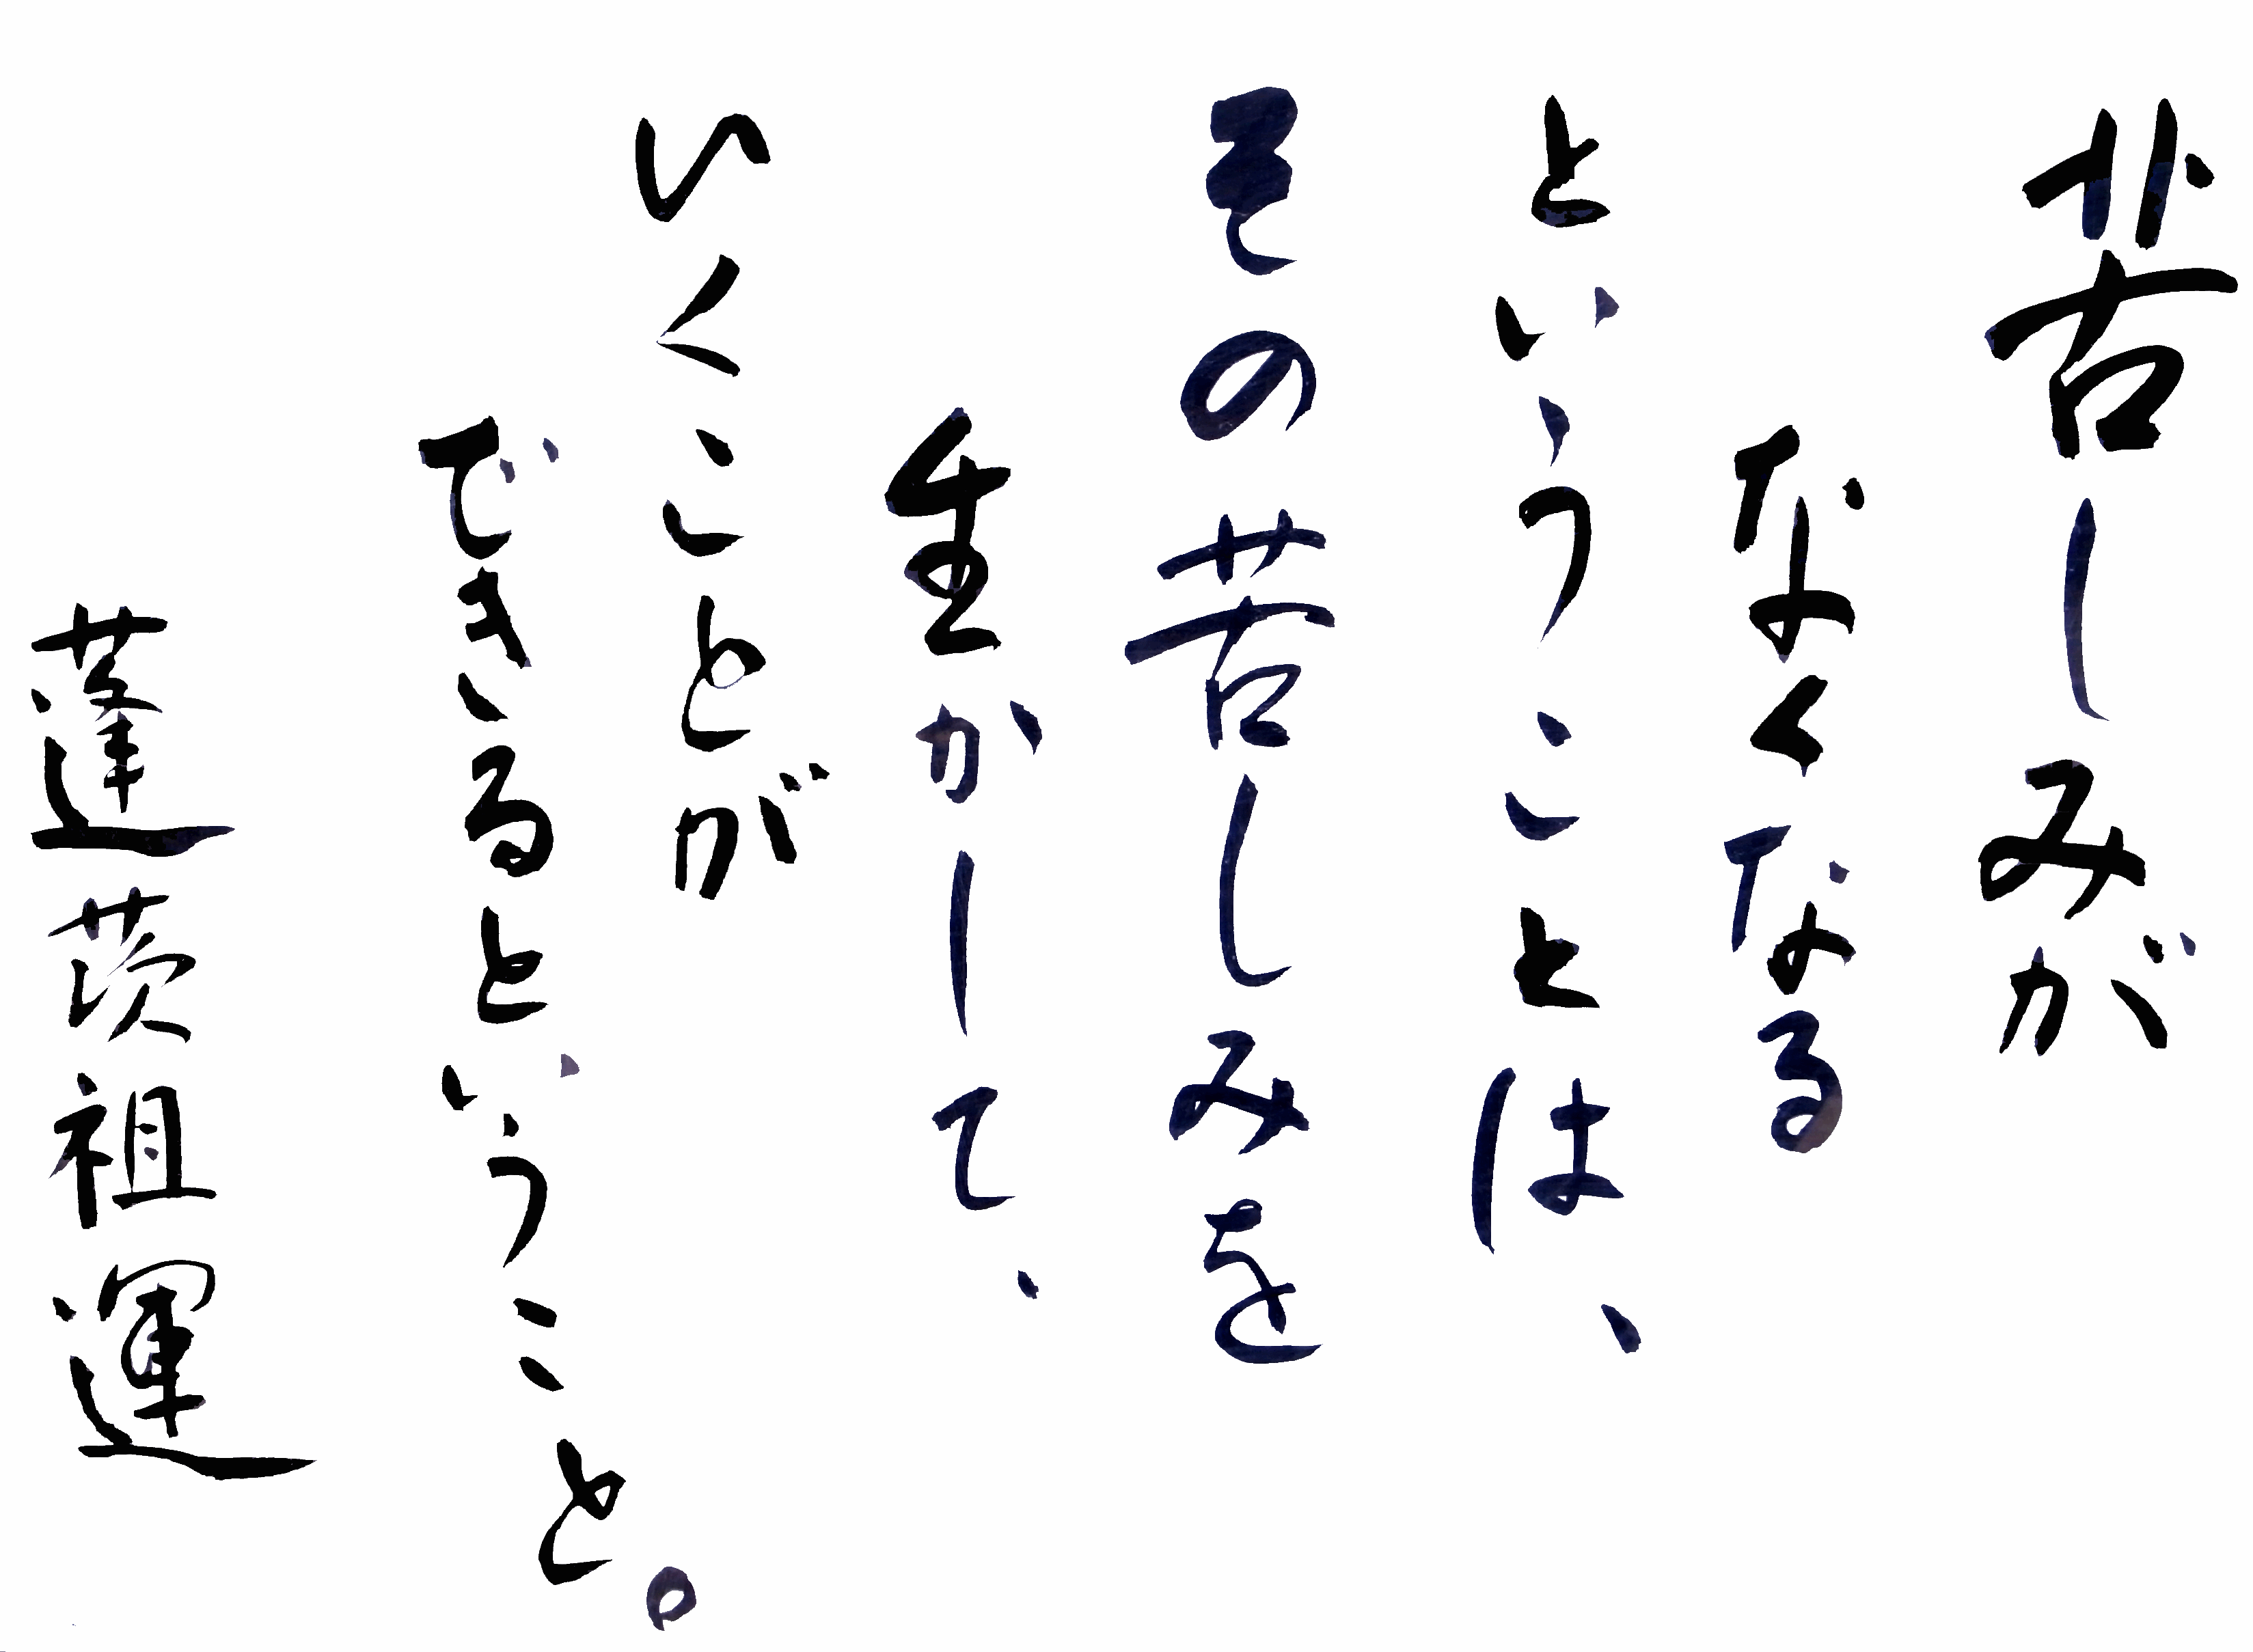 苦しみが
なくなる
ということは、
その苦しみを
生かして、
いくことが
できるということ。
蓬茨祖運